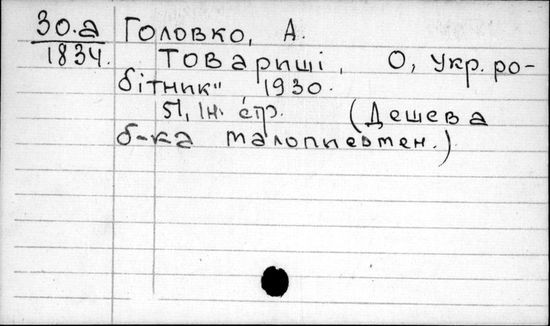 30.а Головко, А.
1834. Товариші, О, Укр. ро-
бітник" 1930.
51, Ін. стр. (Дешева
б-ка малописьмен.)